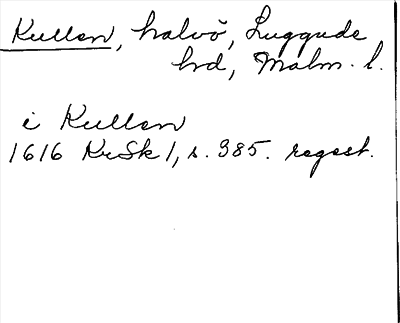 Kullen, halvö, Luggude
hrd, Malm. l.
i Kullen
1616 KrSk 1, s. 385. regest.